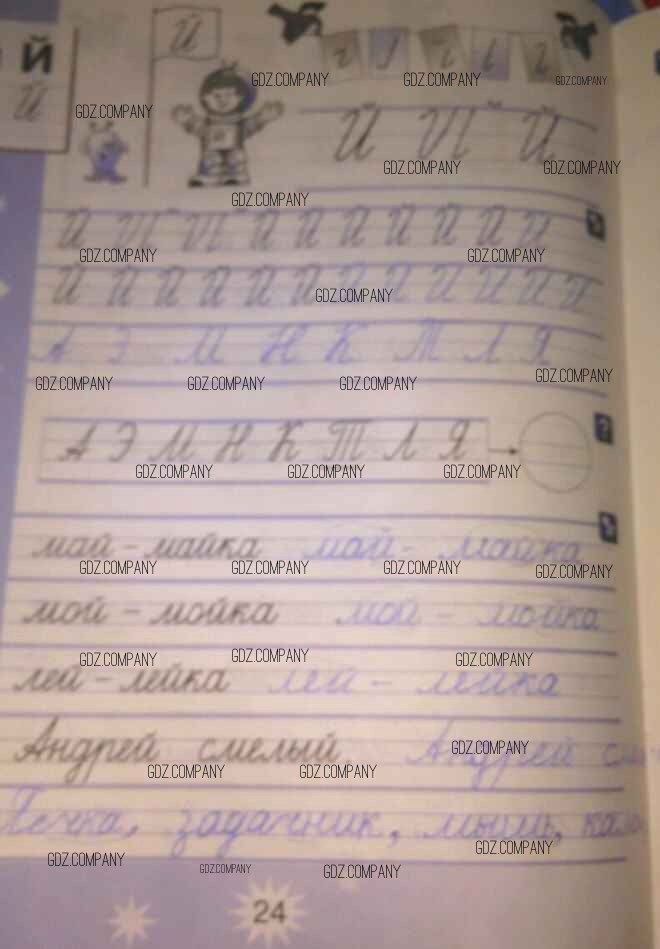 Й
Й
Й
Й Й Й
Й Й Й Й Й Й Й Й Й Й
Й Й Й Й Й Й Й Й Й Й Й Й
А Э М Н К Т Л Я
А Э М Н К Т Л Я
?
май – майка май – майка
мой – мойка мой – мойка
лей – лейка лей – лейка
Андрей смелый Андрей
задачник, мышь,
24
GDZ.COMPANY